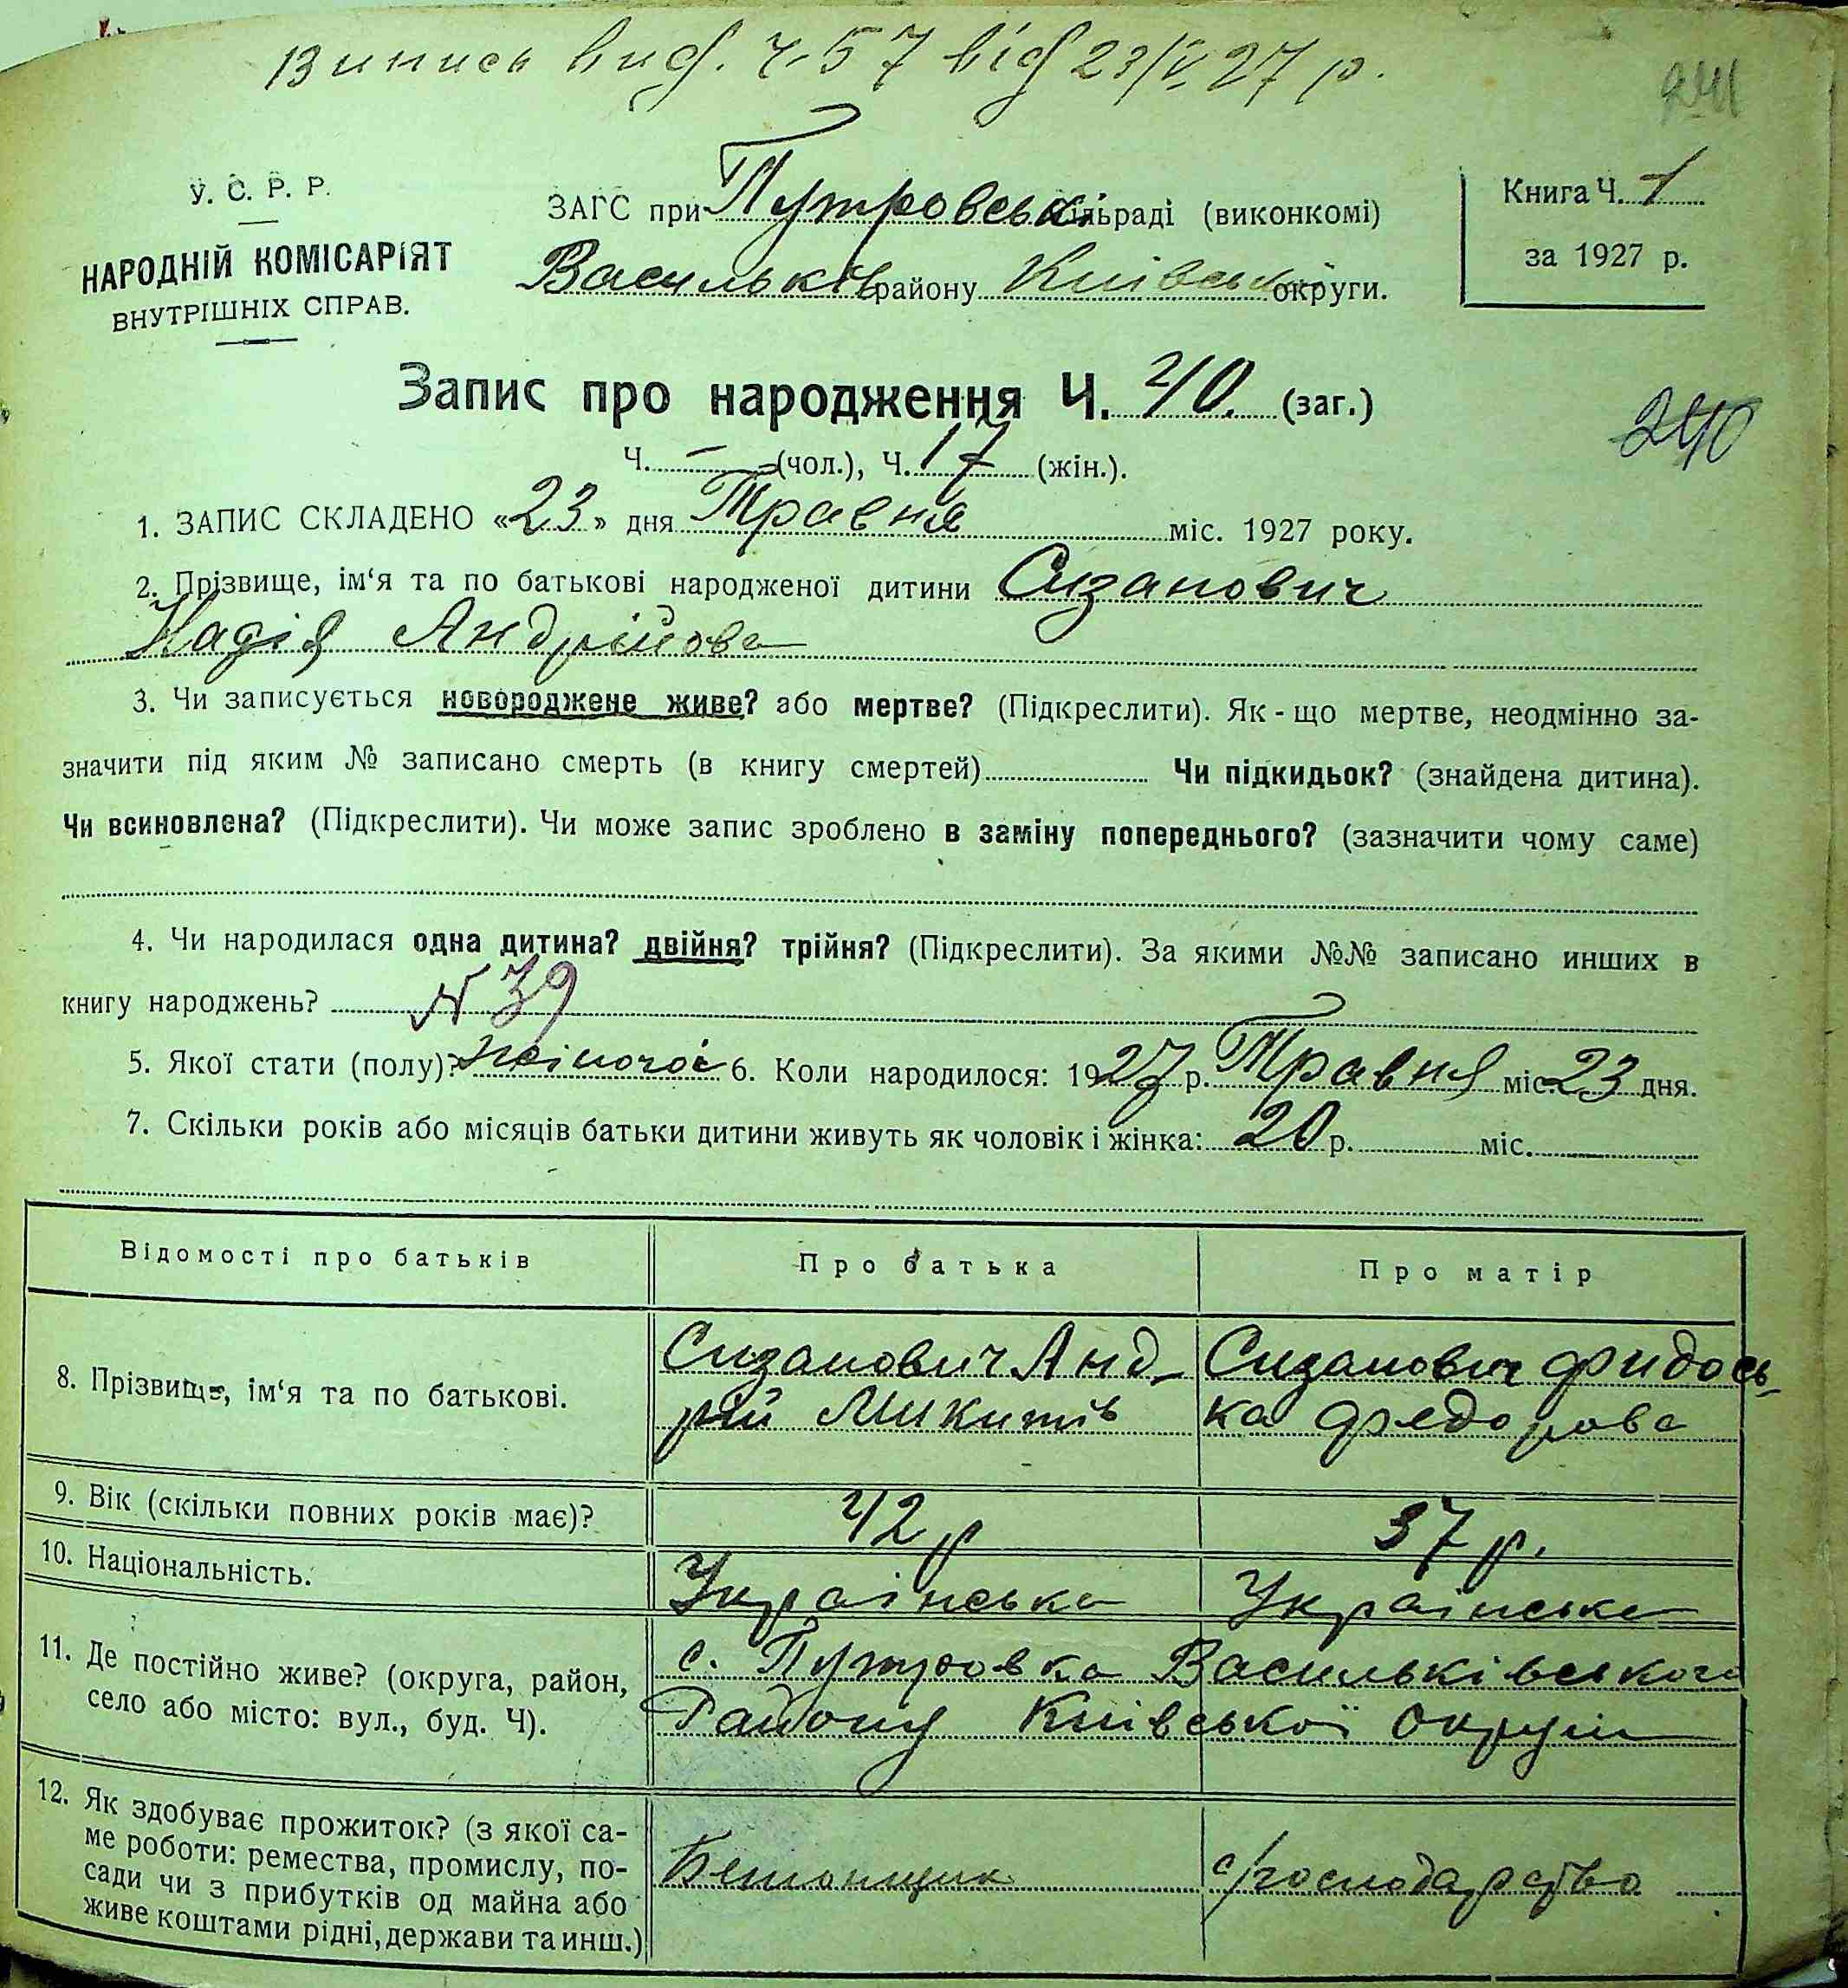 Випись вид. ч. 57 від 23/V 27 р.
241
У. С. Р. Р.
НАРОДНІЙ КОМІСАРІЯТ
ВНУТРІШНІХ СПРАВ.
ЗАГС при Путровськ сільраді (виконкомі)
Васильків району Київськ округи.
Книга Ч. 1
за 1927 р.
Запис про народження Ч. 40. (заг.)
240
Ч. – (чол.), Ч. 17 (жін.).
1. ЗАПИС СКЛАДЕНО «23» дня Травня міс. 1927 року.
2. Прізвище, ім‘я та по батькові народженої дитини Сизанович
Надія Андрійова
3. Чи записується новороджене живе? або мертве? (Підкреслити). Як - що мертве, неодмінно за-
значити під яким № записано смерть (в книгу смертей) Чи підкидьок? (знайдена дитина).
Чи всиновлена? (Підкреслити). Чи може запис зроблено в заміну попереднього? (зазначити чому саме)
4. Чи народилася одна дитина? двійня? трійня? (Підкреслити). За якими №№ записано инших в
книгу народжень? N 39
5. Якої стати (полу)? жіночої 6. Коли народилося: 1927 р. Травня міс. 23 дня.
7. Скільки років або місяців батьки дитини живуть як чоловік і жінка: 20 р. міс.
Відомості про батьків Про батька Про матір
8. Прізвище, ім‘я та по батькові. Сизанович Анд- Сизанович Фидось-
рій Микитів ка Федорова
9. Вік (скільки повних років має)? 42 р 37 р.
10. Національність. Українська Українська
11. Де постійно живе? (округа, район, с. Путровка Васильківського
село або місто: вул., буд. Ч). Району Київської округи
12. Як здобуває прожиток? (з якої са-
ме роботи: ремества, промислу, по-
сади чи з прибутків од майна або Бетонщик с/господарство
живе коштами рідні, держави та инш.)